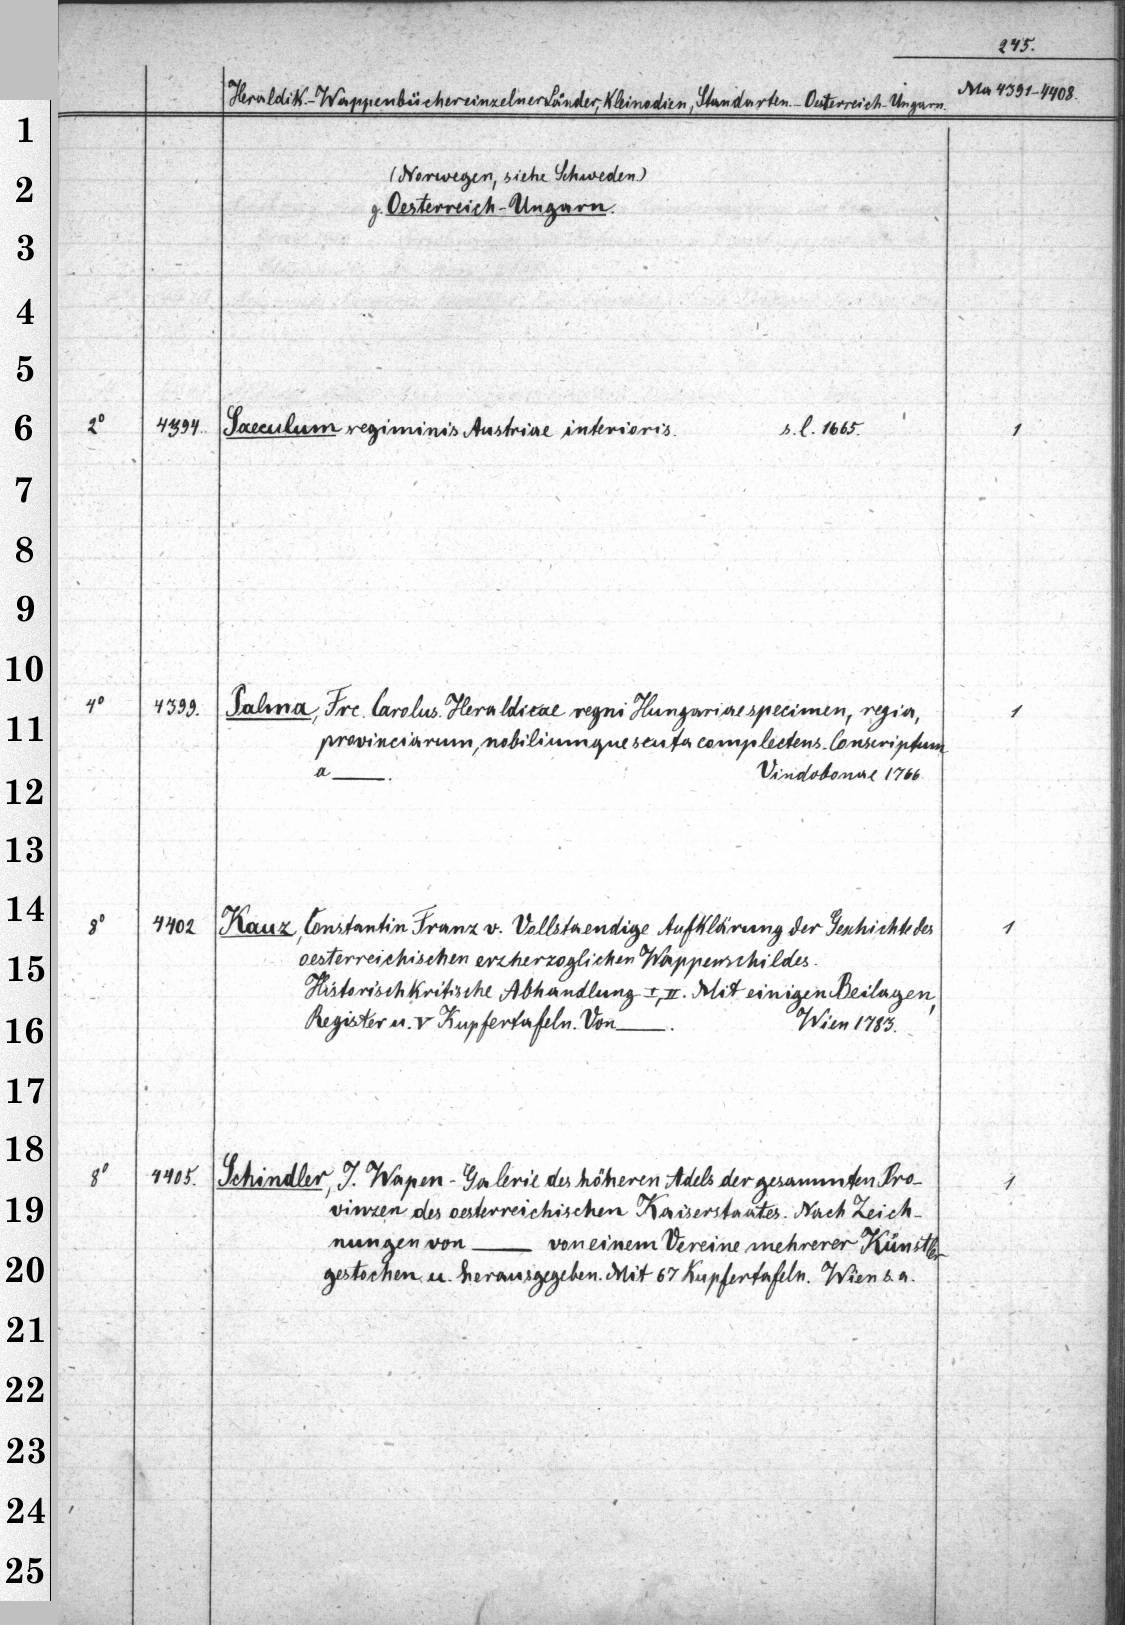 245.
Heraldik.-Wappenbücher einzelner Länder, Kleinodien, Standarten.-Oesterreich-Ungarn. Ma 4391-4408.
(Norwegen, siehe Schweden)
g. Oesterreich-Ungarn.
2° 4394. Saeculum regiminis Austriae interioris. s. l. 1665. 1
4° 4399. Palma, Frc. Carolus. Heraldicae regni Hungariae specimen, regia, 1
provinciarum, nobiliumque scuta complectens. Conscriptum
a ____. Vindobonae 1766
8° 4402 Kauz, Constantin Franz v. Vollstaendige Aufklärung der Geschichte des 1
oesterreichischen erzherzoglichen Wappenschildes.
Historischkritische Abhandlung I, II. Mit einigen Beilagen,
Register u. V Kupfertafeln. Von ____. Wien 1783.
8° 4405. Schindler, J. Wapen-Galerie des höheren Adels der gesammten Pro- 1
vinzen des oesterreichischen Kaiserstaates. Nach Zeich-
nungen von ____ von einem Vereine mehrerer Künstler
gestochen u. herausgegeben. Mit 67 Kupfertafeln. Wien s. a.
1
2
3
4
5
6
7
8
9
10
11
12
13
14
15
16
17
18
19
20
21
22
23
24
25